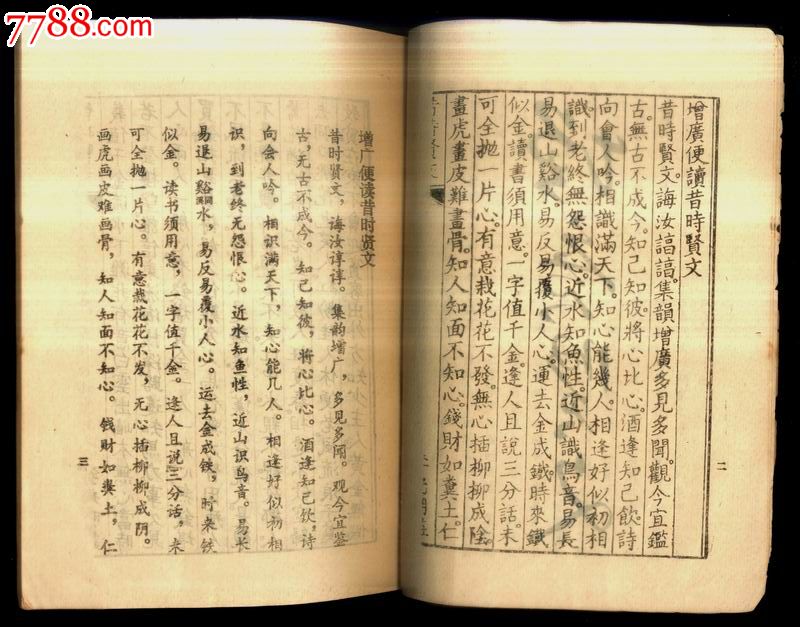 7788.com
增廣便讀昔時賢文
昔時賢文。誨汝諄諄。集韻增廣。多見多聞。觀今宜鑑
古。無古不成今。知己知彼。將心比心。酒逢知己飲。詩
向會人吟。相識滿天下。知心能幾人。相逢好似初相
識。到老終無怨恨心。近水知魚性。近山識鳥音。易長
易退山谿水。易反易覆小人心。運去金成鐵。時來鐵
似金。讀書須用意。一字值千金。逢人且說三分話。未
可全拋一片心。有意栽花花不發。無心插柳柳成陰。
畫虎畫皮難畫骨。知人知面不知心。錢財如糞土。仁
昔時賢文
二
增广便读昔时贤文
昔时贤文，诲汝谆谆。集韵增广，多见多闻。观今宜鉴
古，无古不成今。知己知彼，将心比心。酒逢知己饮，诗
向会人吟。相识满天下，知心能几人。相逢好似初相
识，到老终无怨恨心。近水知鱼性，近山识鸟音。易长
易退山谿水，易反易覆小人心。运去金成铁，时来铁
似金。读书须用意，一字值千金。逢人且说三分话，未
可全抛一片心。有意栽花花不发，无心插柳柳成阴。
画虎画皮难画骨，知人知面不知心。钱财如粪土，仁
三